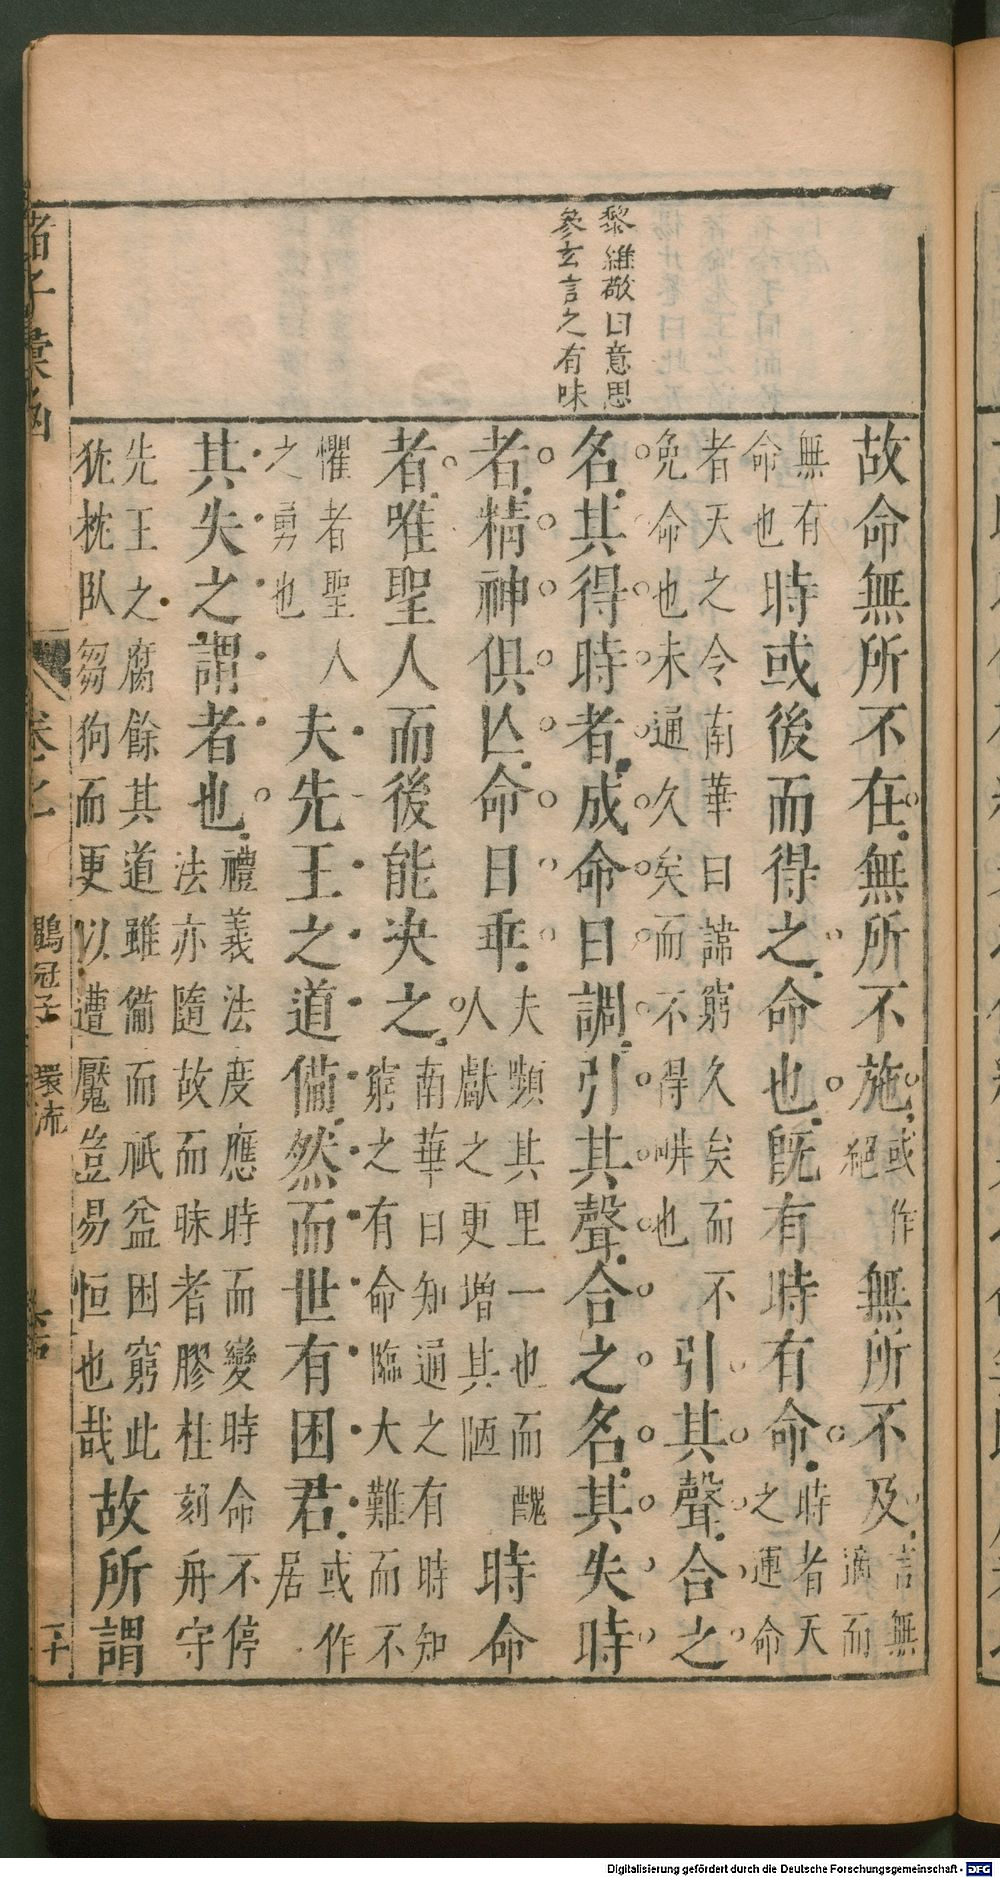 黎維敬曰意思
參玄言之有味
故命無所不在無所不施或作絕無所不及言無適而
無有命也時或後而得之命也既有時有命時者天之運命
者天之令南華曰諱窮久矣而不免命也未通久矣而不得時也引其聲合之
名其得時者成命曰調引其聲合之名其失時
者精神俱亾命曰乖夫顰其里一也而醜人獻之更增其陋時命
者唯聖人而後能決之南華曰知通之有時知窮之有命臨大難而不
懼者聖人之勇也夫先王之道備然而世有困君或作居
其失之謂者也禮義法度應時而變時命不停法亦隨故而昧者膠柱刻舟守
先王之腐餘其道雖備而祇益困窮此犹枕臥芻狗而更以遭魘豈易恒也哉故所謂
諸子彙函
卷之
鶡冠子 環流
二十
Digitalisierung gefördert durch die Deutsche Forschungsgemeinschaft - DFG